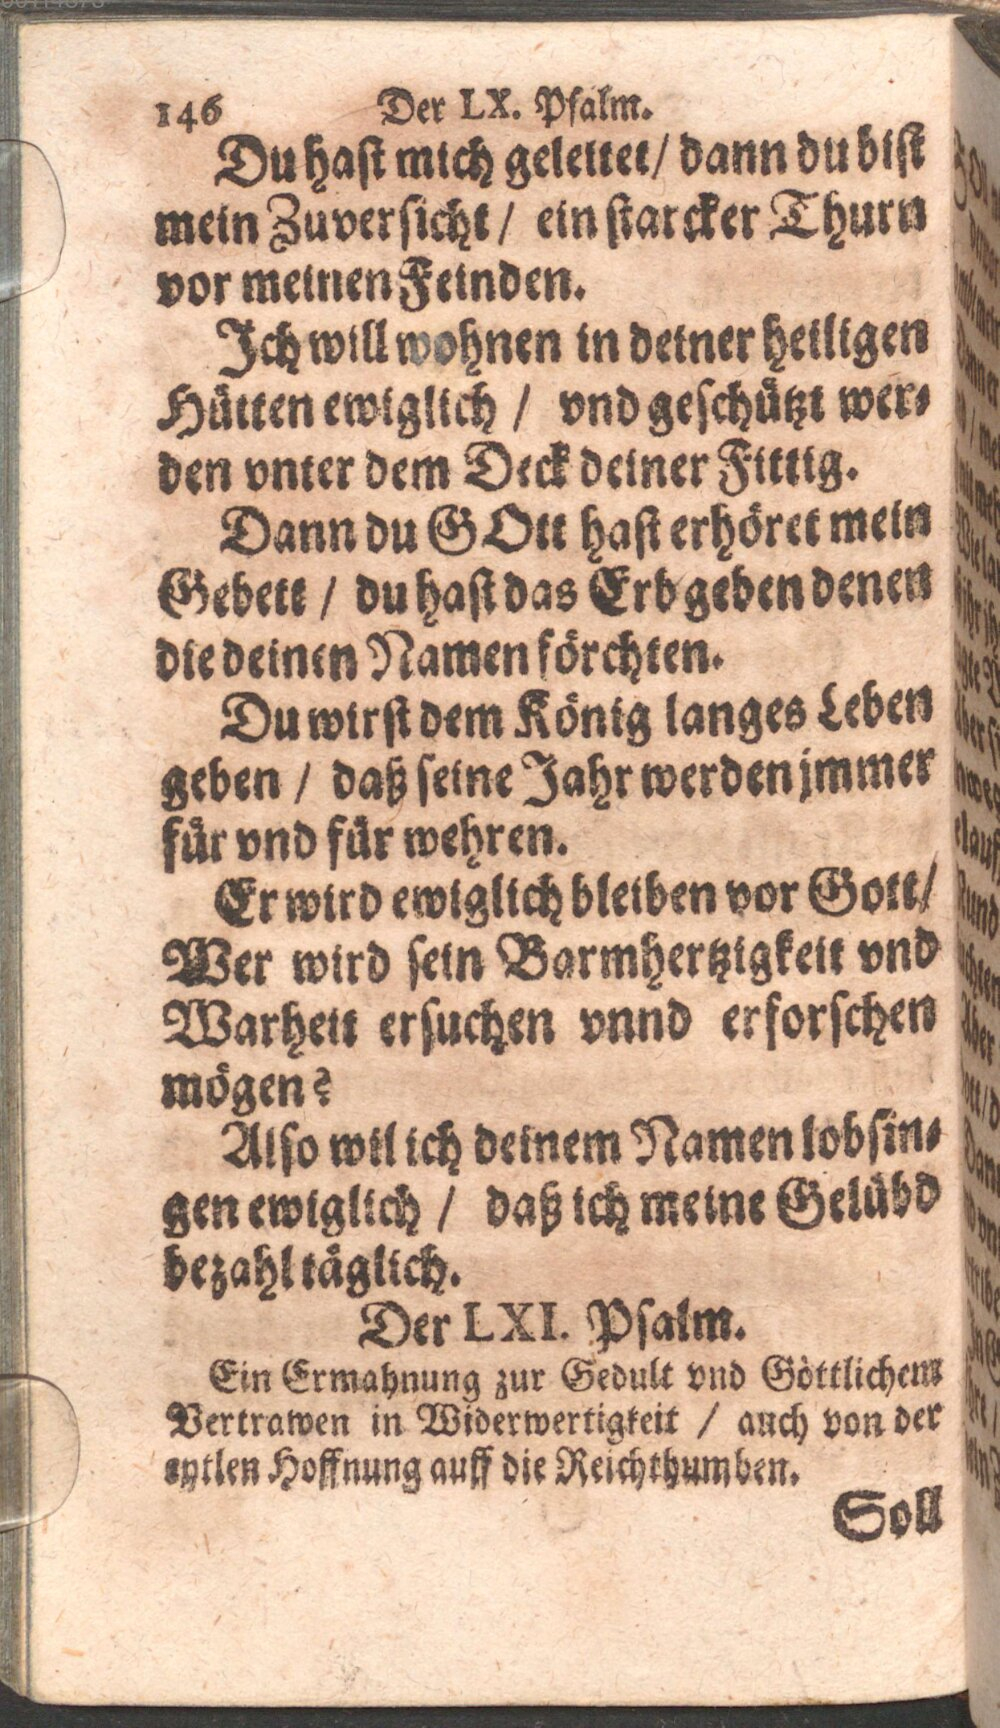 146 Der LX. Psalm.
Du hast mich geleitet / dann du bist
mein Zuversicht / ein starcker Thurn
vor meinen Feinden.
Ich will wohnen in deiner heiligen
Hütten ewiglich / vnd geschützt wer-
den vnter dem Deck deiner Fittig.
Dann du GOtt hast erhöret mein
Gebett / du hast das Erb geben denen
die deinen Namen förchten.
Du wirst dem König langes Leben
geben / daß seine Jahr werden jmmer
für vnd für wehren.
Er wird ewiglich bleiben vor Gott /
Wer wird sein Barmhertzigkeit vnd
Warheit ersuchen vnnd erforschen
mögen?
Also wil ich deinem Namen lobsin-
gen ewiglich / daß ich meine Gelübd
bezahl täglich.
Der LXI. Psalm.
Ein Ermahnung zur Gedult vnd Göttlichem
Vertrawen in Widerwertigkeit / auch von der
eytlen Hoffnung auff die Reichthumben.
Soll